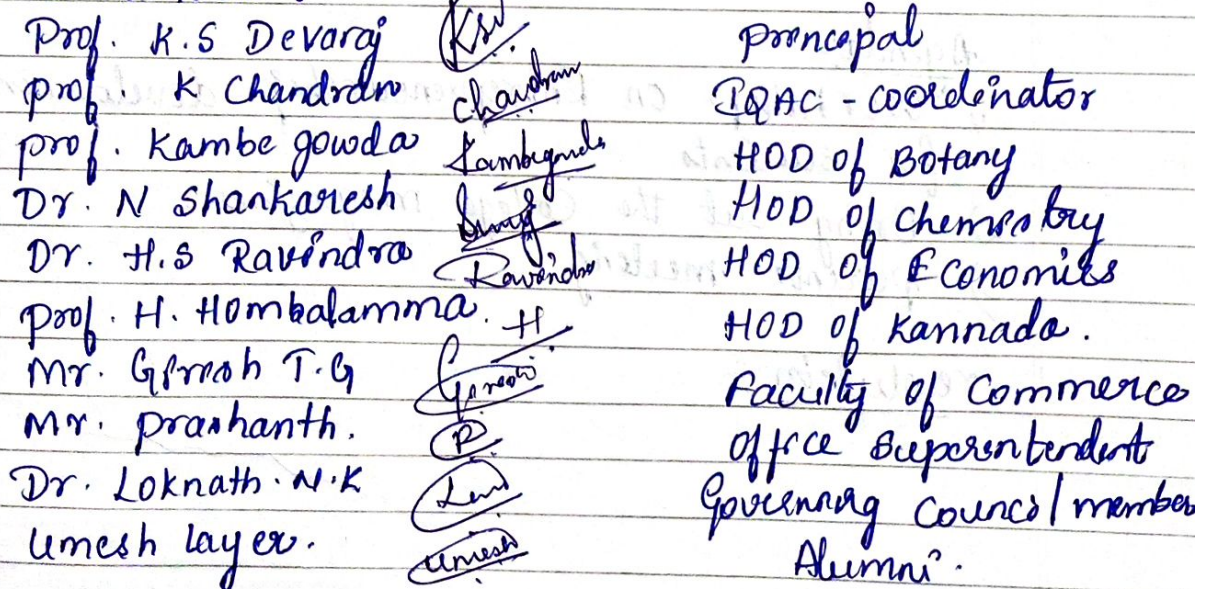 Prof. K.S Devaraj Ksd Principal
prof. K Chandran Chandran IQAC - coordinator
prof. Kambe gowda Kambegowda HOD of Botany
Dr. N Shankaresh HOD of Chemistry
Dr. H.S Ravindra Ravindra HOD of Economics
prof. H. Hombalamma. H HOD of Kannada.
Mr. Girish T.G Girish Faculty of Commerce
Mr. prashanth. P Office Superintendent
Dr. Loknath. N.K Governing Council member
Umesh layer. Umesh Alumni.